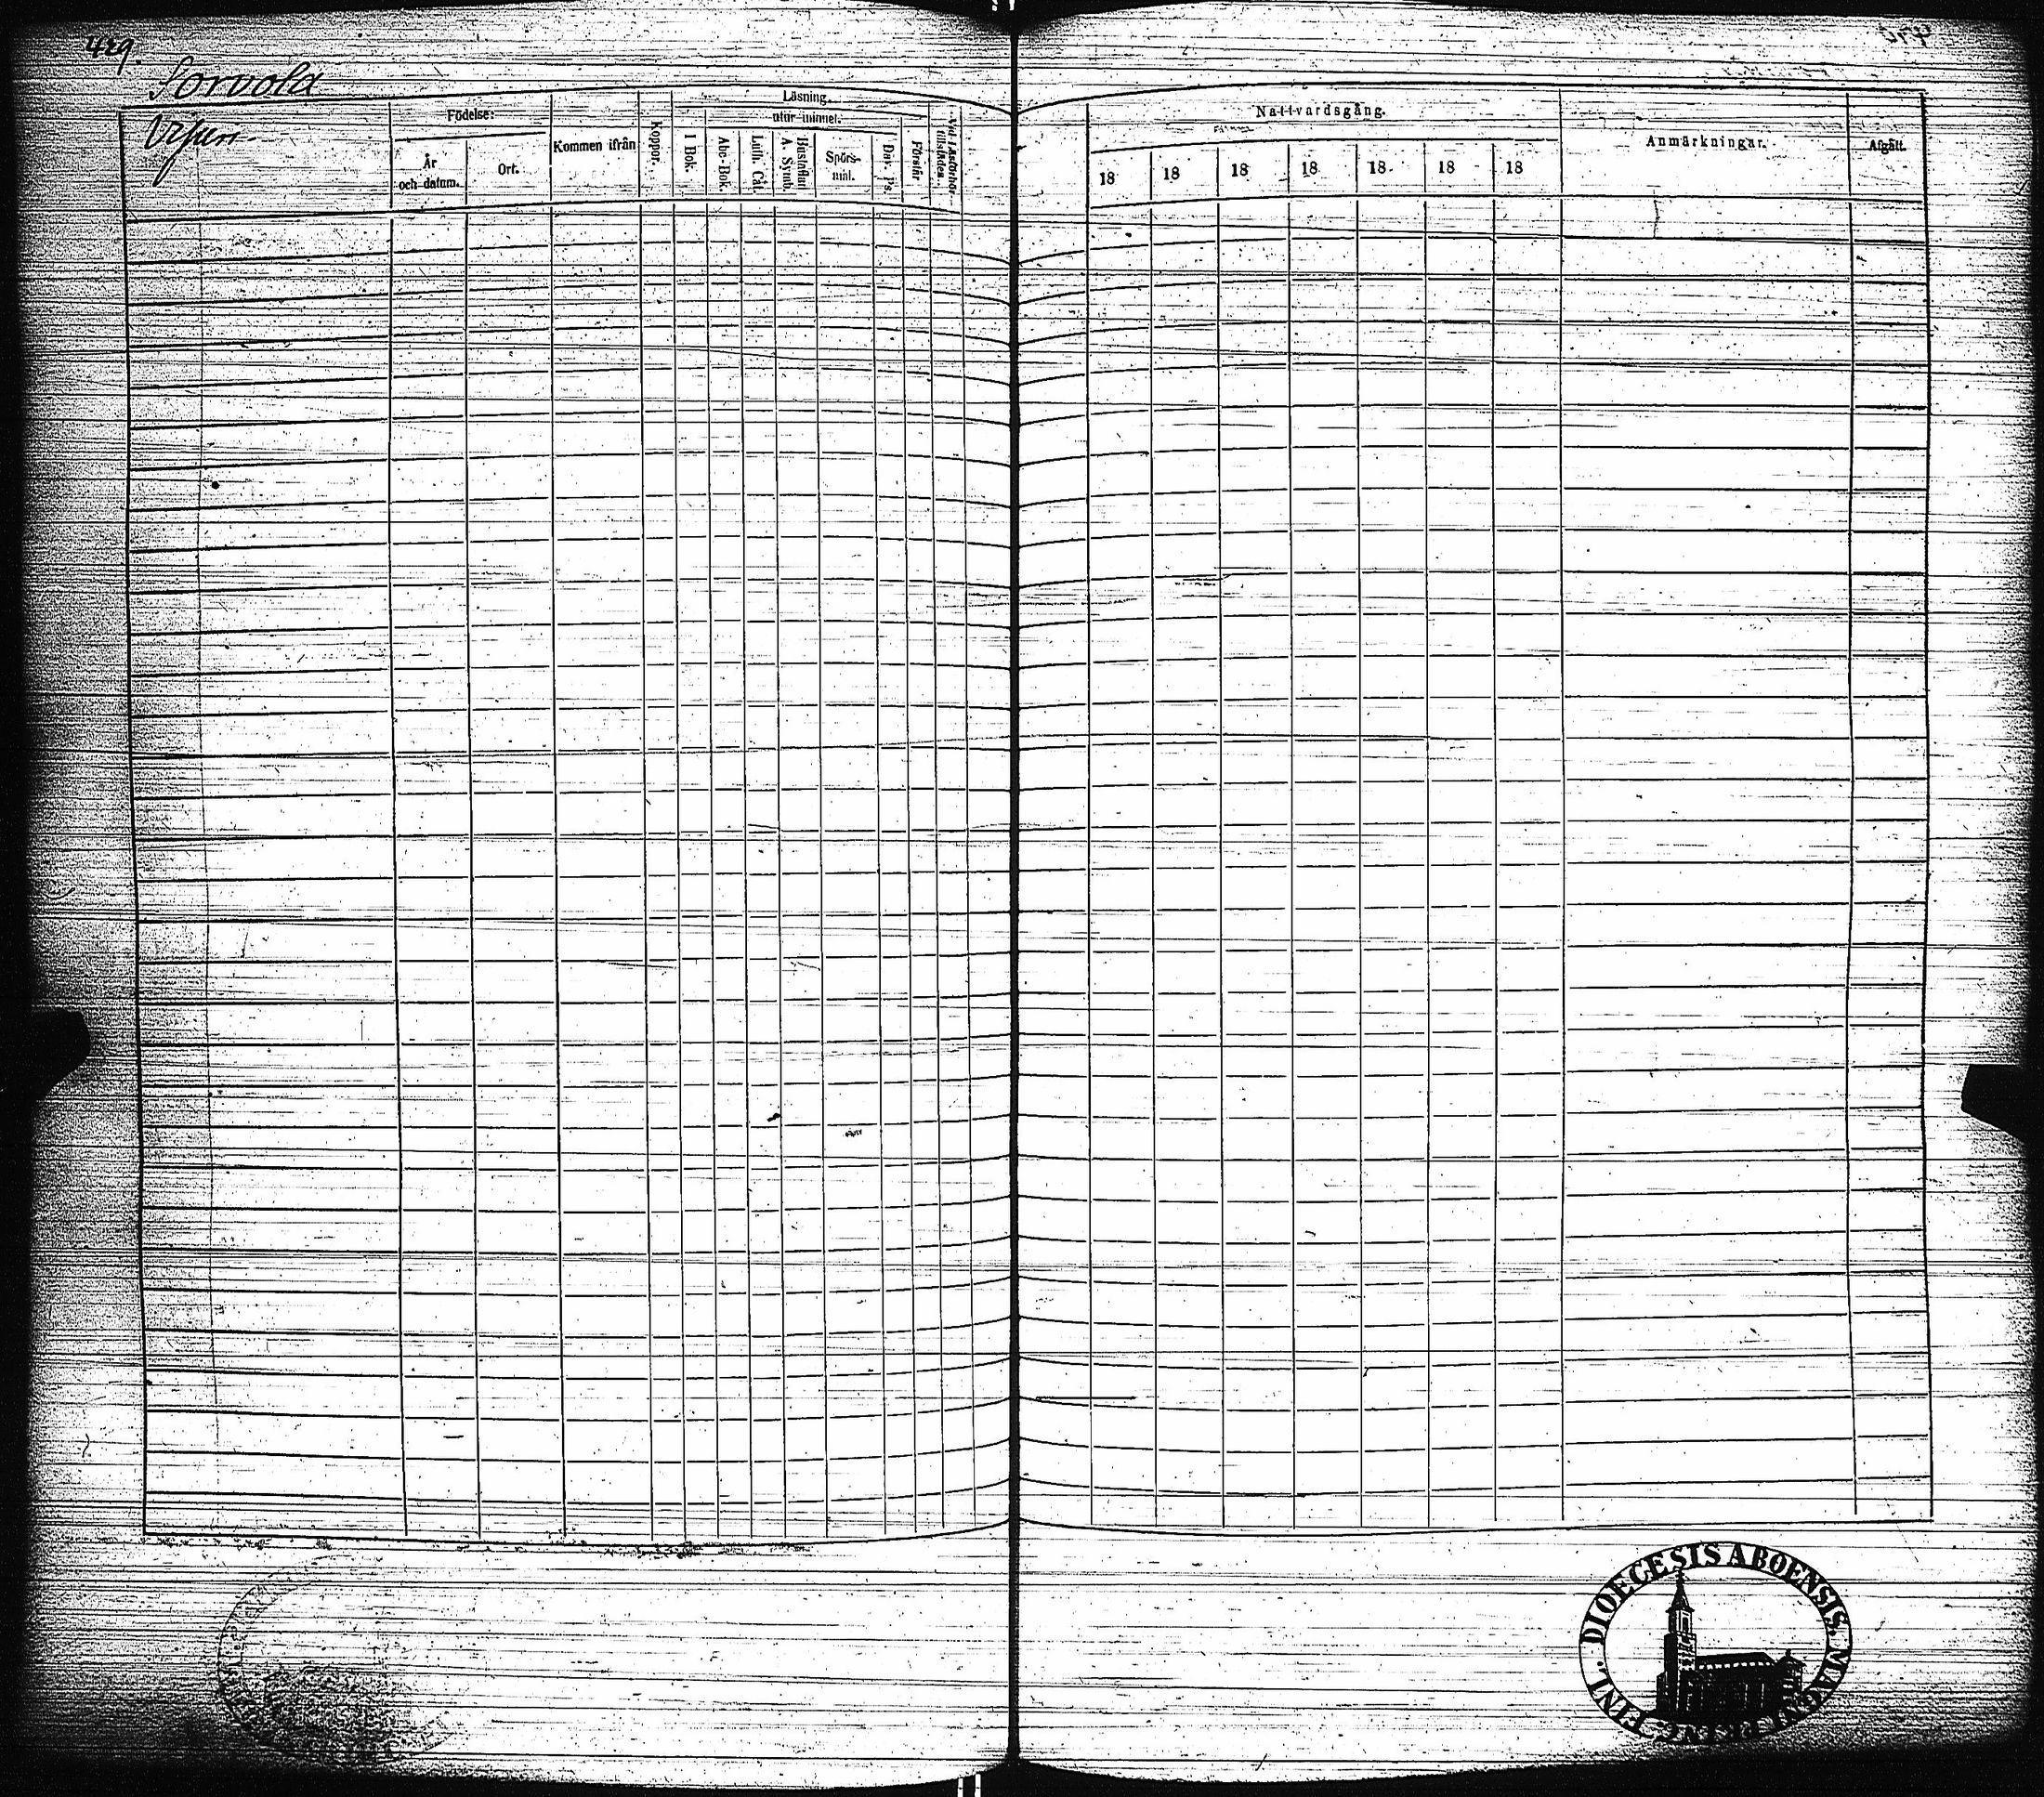 429.
Sorvola
Födelse:
År
och datum.
Ort.
Kommen ifrån
Koppor.
Läsning.
utur minnet.
I Bok.
Abc-Bok.
Luth. Cat.
Hustaflan
A. Symb.
Spörs-
mål.
Dav. Ps.
Förstår
Nattvardsgång.
18 18 18 18 18 18 18
Anmärkningar.
Afgått.
DIOECESIS ABOENSIS. MAGNI PRINC. FINL.